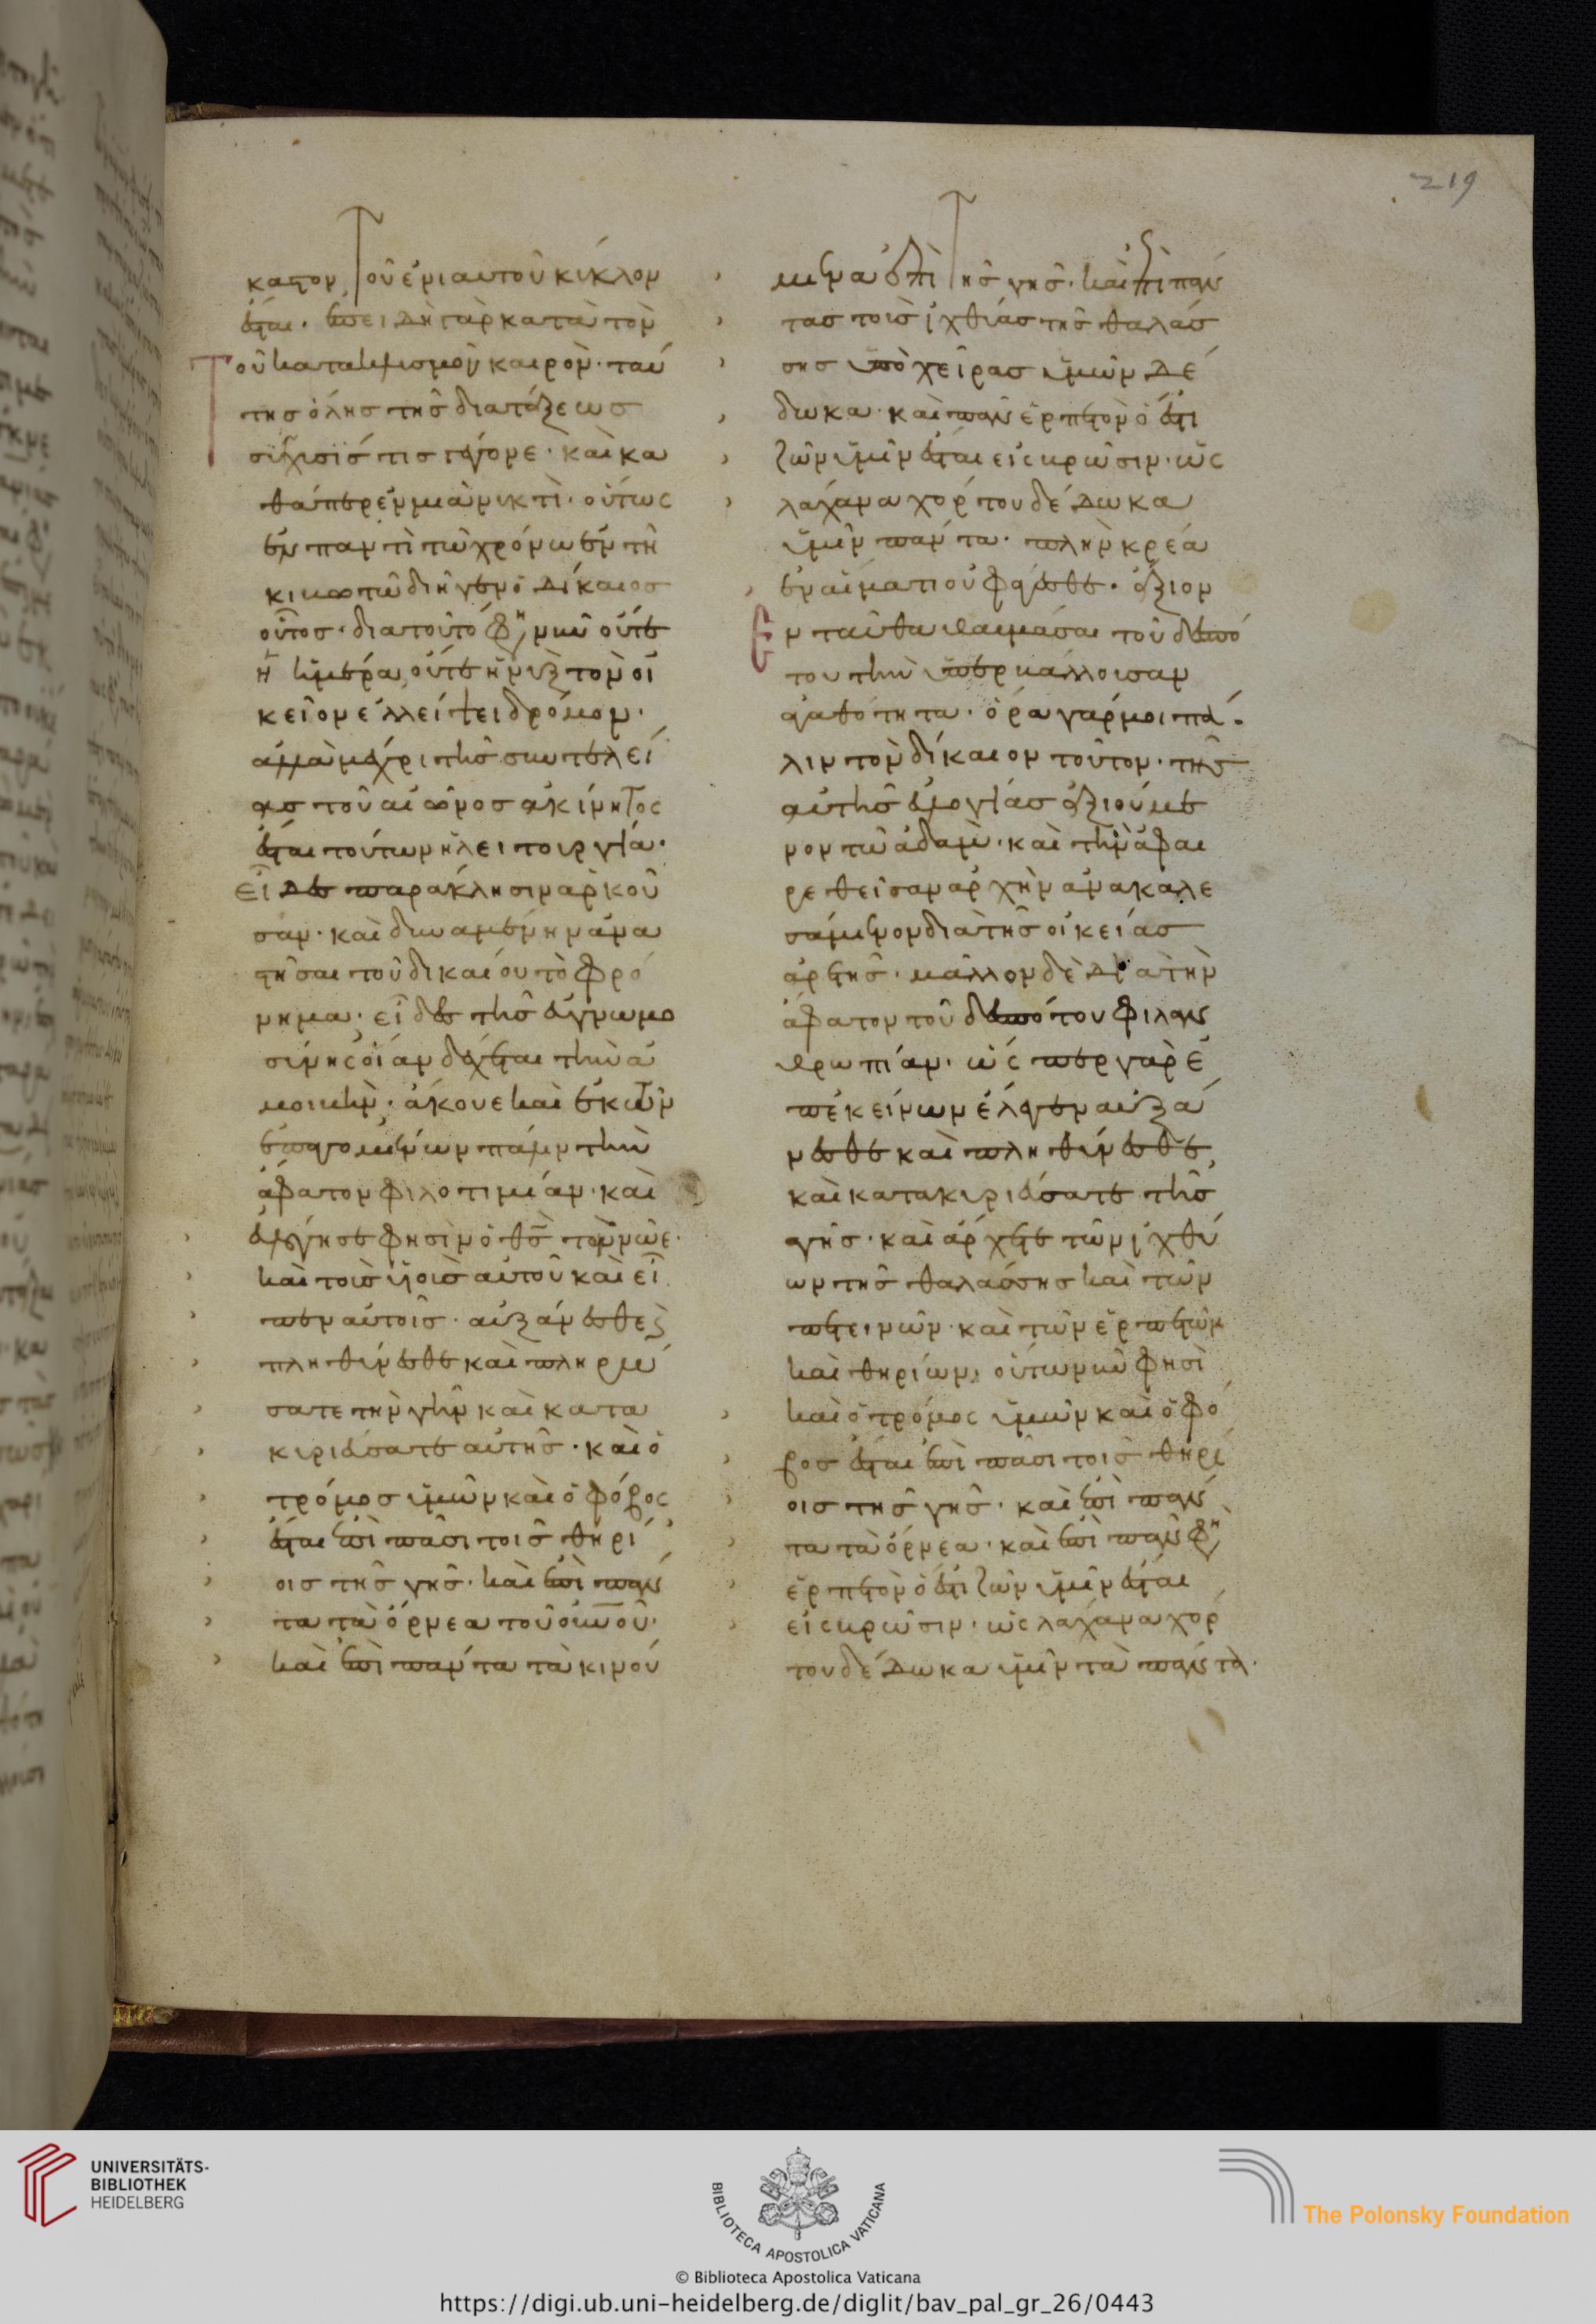 219
κατον τοῦ ἐνιαυτοῦ κύκλον
ἔσται. ἐπειδὴ γὰρ κατὰ τὸν
τοῦ κατακλυσμοῦ καιρὸν. ταύ
της ὅλης τῆς διατάξεως
σύγχυσίς τις γέγονε. καὶ κα
θάπερ ἐν μιᾶ νυκτὶ. οὕτως
ἐν παντὶ τῶ χρόνω ἐν τῆ
κιβωτῶ διῆγεν ὁ δίκαιος
οὗτος. διὰ τοῦτό φη, νῦν οὔτε
ἡ ἡμέρα, οὔτε ἡ νὺξ τὸν οἰ
κεῖον ἐλλείψει δρόμον.
ἀλλὰ μέχρι τῆς συντελεί
ας τοῦ αἰῶνος ἀκίνητος
ἔσται τούτων ἡ λειτουργία.
εἶδες παράκλησιν ἀρκοῦ
σαν. καὶ δυναμένην ἀνα
στῆσαι τοῦ δικαίου τὸ φρό
νημα. εἶδες τῆς εὐγνωμο
σύνης οἵαν δέχεται τὴν ἀ
μοιβὴν. ἄκουε καὶ ἐκ τῶν
ἐπαγομένων πάλιν τὴν
ἄφατον φιλοτιμίαν. καὶ
εὐλόγησε φησὶν ὁ θς τὸν νῶε.
καὶ τοὺς υἱοὺς αὐτοῦ καὶ εἶ
πεν αὐτοῖς. αὐξάνεσθε
πληθύνεσθε καὶ πληρώ
σατε τὴν γῆν καὶ κατα
κυριεύσατε αὐτῆς. καὶ ὁ
τρόμος ὑμῶν καὶ ὁ φόβος
ἔσται ἐπὶ πᾶσι τοῖς θηρί
οις τῆς γῆς. καὶ ἐπὶ πάν
τα τὰ ὄρνεα τοῦ οὐνοῦ.
καὶ ἐπὶ πάντα τὰ κινού
μενα ἐπὶ τῆς γῆς. καὶ ἐπὶ πάν
τας τοὺς ἰχθύας τῆς θαλάσ
σης ὑπὸ χεῖρας ὑμῶν δέ
δωκα. καὶ πᾶν ἑρπετὸν ὅ ἐστι
ζῶν ὑμῖν ἔσται εἰς βρῶσιν. ὡς
λάχανα χόρτου δέδωκα
ὑμῖν πάντα. πλὴν κρέα
ἐν αἵματι οὐ φάγεσθε. ἄξιον
ἐνταῦθα θαυμάσαι τοῦ δεσπό
του τὴν ὑπερβάλλουσαν
ἀγαθότητα. ὅρα γάρ μοι πά
λιν τὸν δίκαιον τοῦτον. τῆς
αὐτῆς εὐλογίας ἀξιούμε
νον τῶ ἀδὰμ. καὶ τὴν ἀφαι
ρεθεῖσαν ἀρχὴν ἀνακαλε
σάμενον διὰ τῆς οἰκείας
ἀρετῆς. μᾶλλον δὲ διὰ τὴν
ἄφατον τοῦ δεσπότου φιλαν
θρωπίαν. ὥσπερ γὰρ ἐ
π' ἐκείνων ἔλεγεν αὐξά
νεσθε καὶ πληθύνεσθε,
καὶ κατακυριεύσατε τῆς
γῆς. καὶ ἄρχετε τῶν ἰχθύ
ων τῆς θαλάσσης καὶ τῶν
πετεινῶν. καὶ τῶν ἑρπετῶν
καὶ θηρίων, οὕτω νῦν φησὶ
καὶ ὁ τρόμος ὑμῶν καὶ ὁ φό
βος ἔσται ἐπὶ πᾶσι τοῖς θηρί
οις τῆς γῆς. καὶ ἐπὶ πάν
τα τὰ ὄρνεα. καὶ ἐπὶ πᾶν φη
ἑρπετὸν ὅ ἐστι ζῶν ὑμῖν ἔσται
εἰς βρῶσιν. ὡς λάχανα χόρ
του δέδωκα ὑμῖν τὰ πάντα.
UNIVERSITÄTS-
BIBLIOTHEK
HEIDELBERG
BIBLIOTECA APOSTOLICA VATICANA
The Polonsky Foundation
© Biblioteca Apostolica Vaticana
https://digi.ub.uni-heidelberg.de/diglit/bav_pal_gr_26/0443